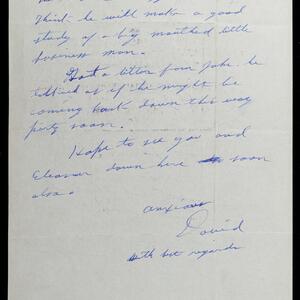 think he will make a good
study of a big mouthed little
business man.
Got a letter from Jake he
talked as if he might be
coming back down this way
pretty soon.
Hope to see you and
Eleanor down here soon
also.
anxious
David
with best regards